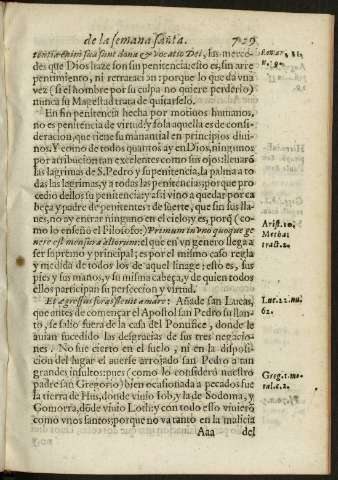 de la semana santa. 729
tentiæ enim sua sunt dona & vocatio Dei, las merce-
des que Dios haze son sin penitencia: esto es, sin arre
pentimiento, ni retratacion: porque lo que da vna
vez (si el hombre por su culpa no quiere perderlo)
nunca su Magestad trata de quitarselo.
En fin penitencia hecha por motiuos humanos,
no es penitencia de virtud; y sola aquella es de consi-
deracion, que tiene su manantial en principios diui-
nos. Y como de todos quantos ay en Dios, ningunos
por atribucion tan excelentes como sus ojos: lleuarõ
las lagrimas de S. Pedro y su penitencia, la palma a to
das las lagrimas, y a todas las penitencias; porque pro
cedio dellos su penitencia; y assi vino a quedar por ca
beça y padre de penitentes: de suerte, que sin sus lla-
nes, no ay entrar ninguno en el cielo y es, porq̃ (co-
mo lo enseño el Filosofo:) Primum in vno quoque ge
nere est mensura aliorum: el que en vn genero llega a
ser supremo y principal; es por el mismo caso regla
y medida de todos los de aquel linage: esto es, sus
pies y sus manos, y su misma cabeça, y de quien todos
ellos participan su perfeccion y virtud.
Et egressus foras fleuit amarè: Añade san Lucas,
que antes de començar el Apostol san Pedro su llan-
to, se solio fuera de la casa del Pontifice, donde le
auian sucedido las desgracias de sus tres negacio-
nes. No fue cierto en el suelo, ni en la disposi-
cion del lugar el auerse arrojado san Pedro a tan
grandes insultos: pues (como lo considerò nuestro
padre san Gregorio) bien ocasionada a pecados fue
la tierra de Hus, donde viuio Iob, y la de Sodoma, y
Gomorra, dõde viuio Lot: y con todo esso viuierõ
como vnos santos: porque no va tanto en la malicia
Aaa del
Roman. 11.
n. 9.
Arist. 10.
Metha.
tract. 2.
Luc. 22. nu.
62.
Greg. 1. mo-
ral. c. 2.